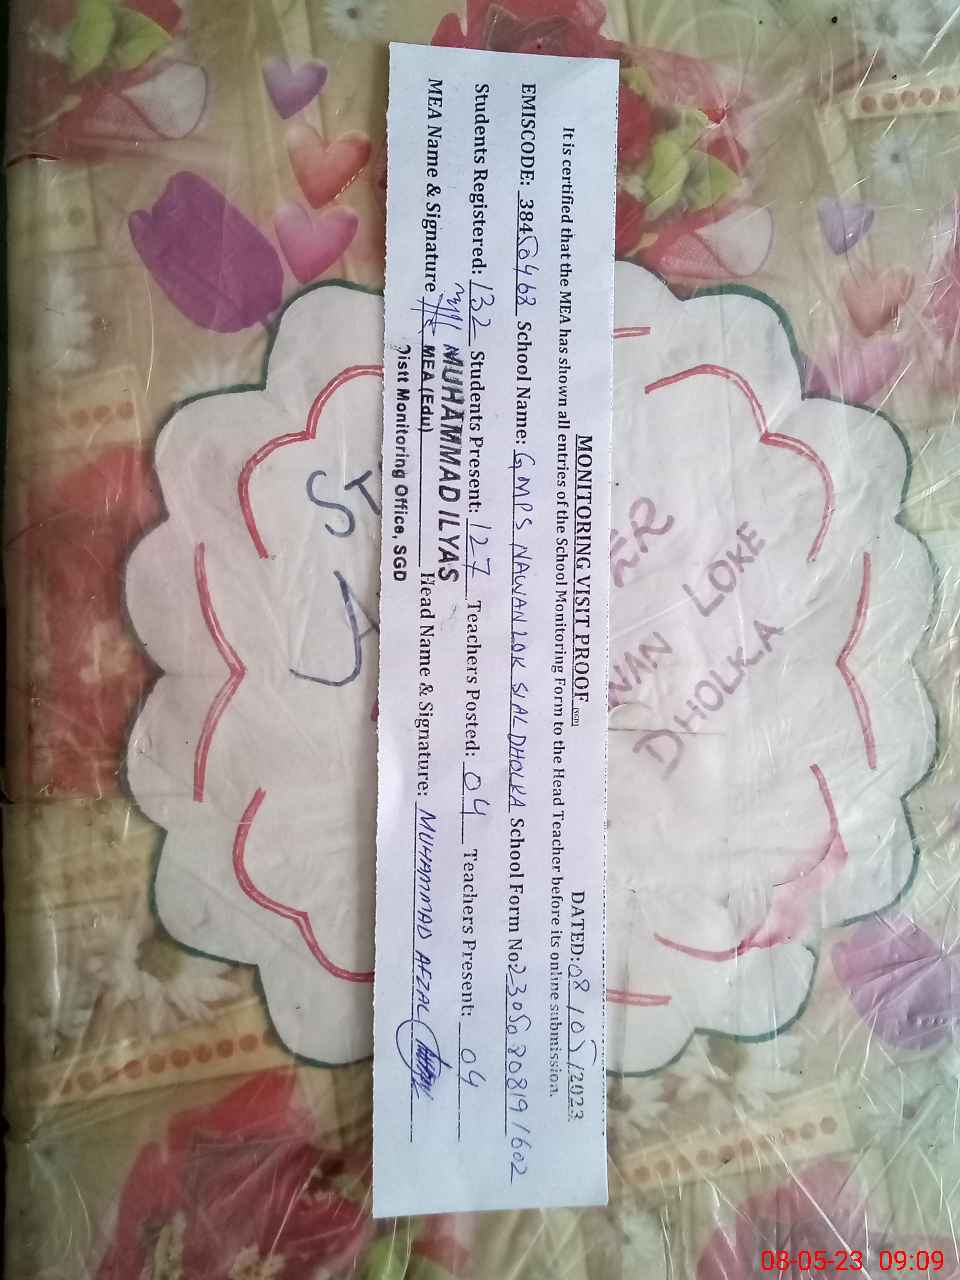 MONITORING VISIT PROOF (SGD) DATED: 08/05/2023
It is certified that the MEA has shown all entries of the School Monitoring Form to the Head Teacher before its online submission.
EMISCODE: 38450468 School Name: GMPS NAWANLOK SIAL DHOLKA School Form No 23050808191602
Students Registered: 132 Students Present: 127 Teachers Posted: 04 Teachers Present: 04
MUHAMMAD ILYAS
MEA Name & Signature MEA (Edu) Head Name & Signature: MUHAMMAD AFZAL
Distt Monitoring Office, SGD
LOKE
DHOLKA
08-05-23 09:09